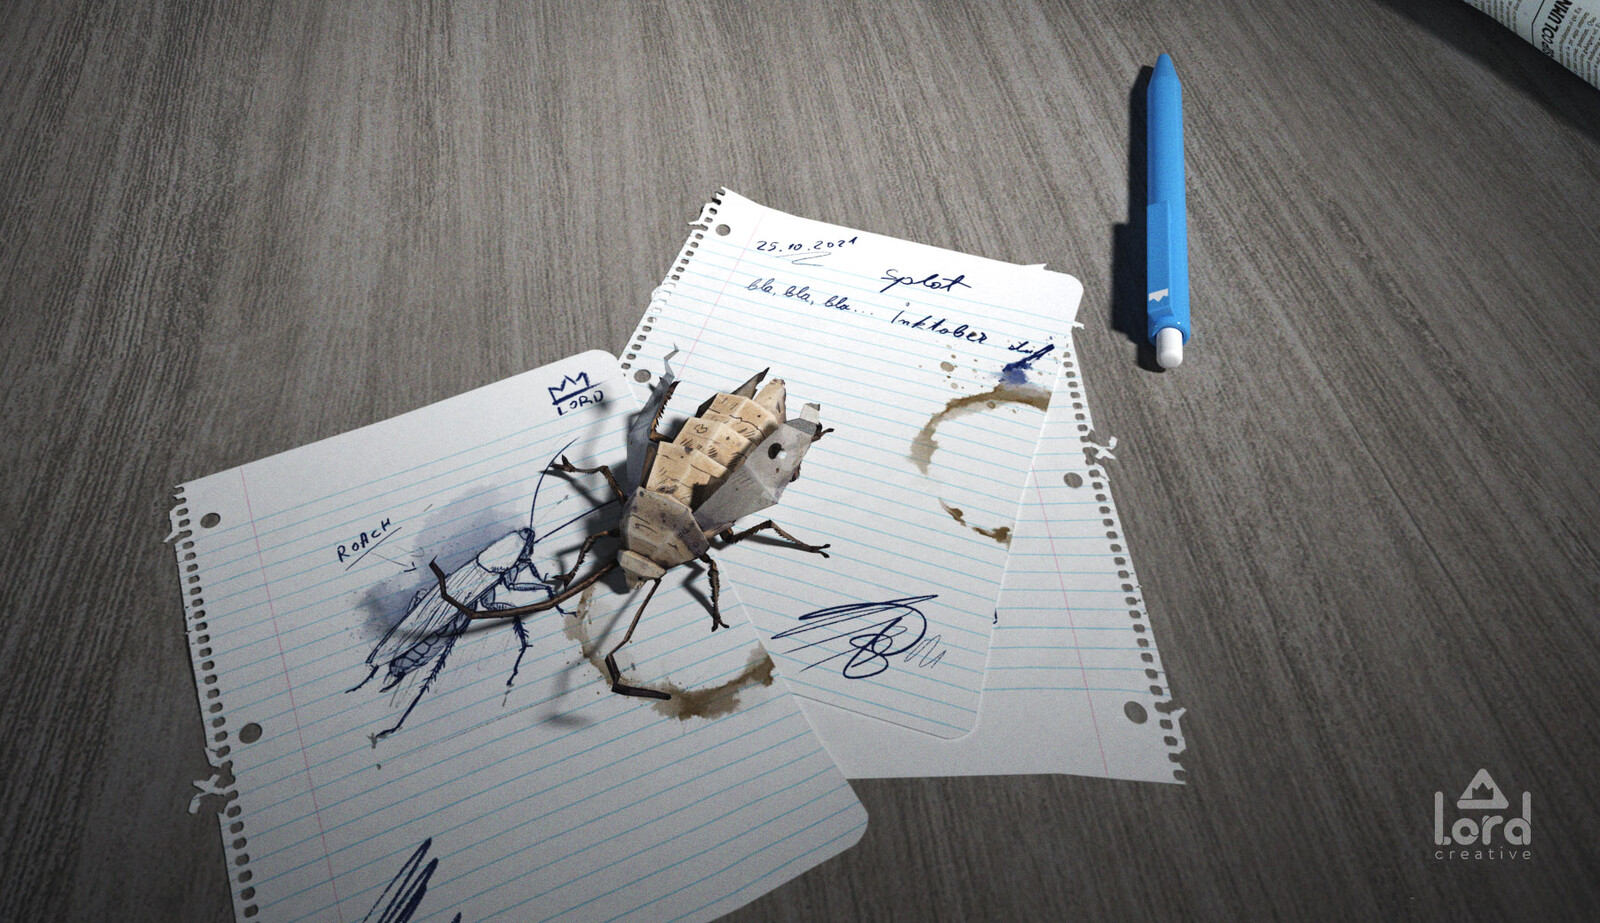 25.10.2021
Splot
bla, bla, bla... Inktober
LORD
ROACH
COLUMN
Lord
creative